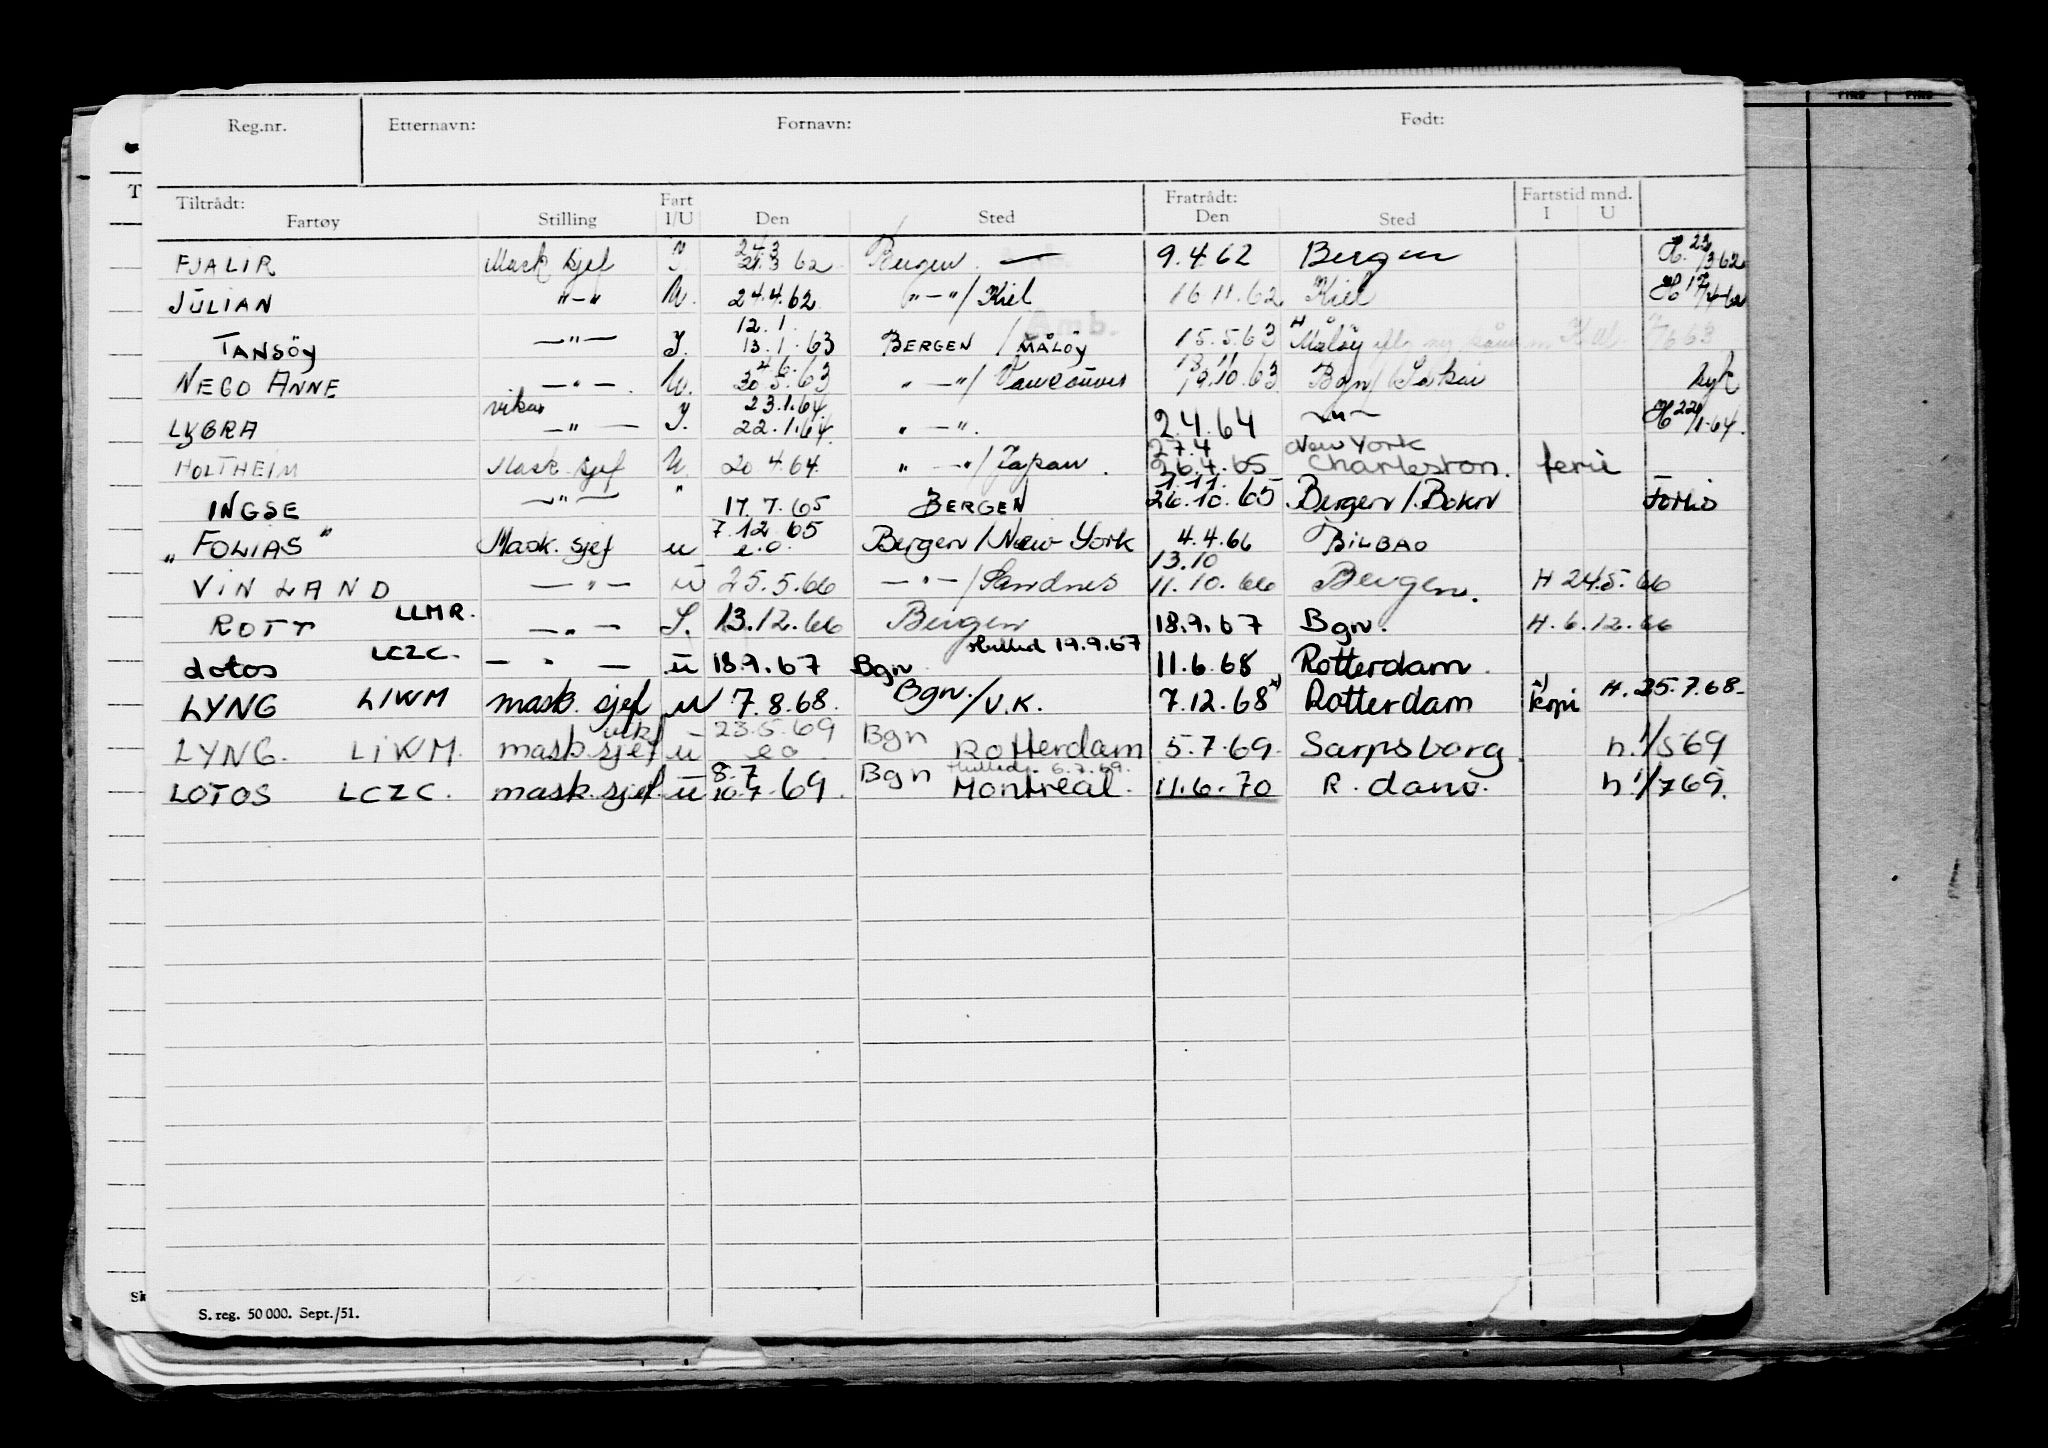 Reg.nr. Etternavn: Fornavn: Født:
Tiltrådt: Fartøy Stilling Fart I/U Den Sted Fratrådt: Den Sted Fartstid mnd. I U
FJALIR Mask sjef 24.3 21.3 62 Bergen — 9.4.62 Bergen H. 23/3 62
JULIAN "—" U. 24.4.62 "—"/ Kiel 16.11.62 Kiel H 17/4-62
TANSÖY —"— J. 12.1. 13.1.63 BERGEN / MÅLÖY 15.5.63 Måløy
NEGO ANNE —"— U. 4.6. 30.5.63 "—"/ Vancouver 19.10.63 Bgn/
LYGRA vikar —"— J. 23.1.64 22.1.64. "—". 2.4.64 —"— H 22/1-64.
HOLTHEIM Mask. sjef U 20.4.64. "—"/ Japan. 27.4 26.4.65 New York Charleston. ferie
INGSE —"— " 17.7.65 BERGEN 1.11. 26.10.65 Bergen/.
"FOLIAS" Mask. sjef u 7.12.65 e.o. Bergen/New York 4.4.66 BILBAO
VINLAND —"— u 25.5.66 —"—/Sandnes 13.10 11.10.66 Bergen. H 24.5.66
ROTT LLMR. —"— I. 13.12.66 Bergen 18.9.67 Bgn. H.6.12.66
Lotos LCZC. —"— u 18.9.67 Bgn 19.9.67 11.6.68 Rotterdam.
LYNG LIWM mask. sjef u 7.8.68. Bgn./U.K. 7.12.68 x) Rotterdam x) kopi H. 25.7.68-
LYNG. LIWM. mask. sjef vik. u 23.5.69 eo Bgn Rotterdam 5.7.69. Sarpsborg. h. 1/5 69
LOTOS LCZC. mask. sjef. u 8.7 10.7.69. Bgn 6.7.69. Montreal. 11.6.70 R. dam. h 1/7 69.
S. reg. 50 000. Sept./51.